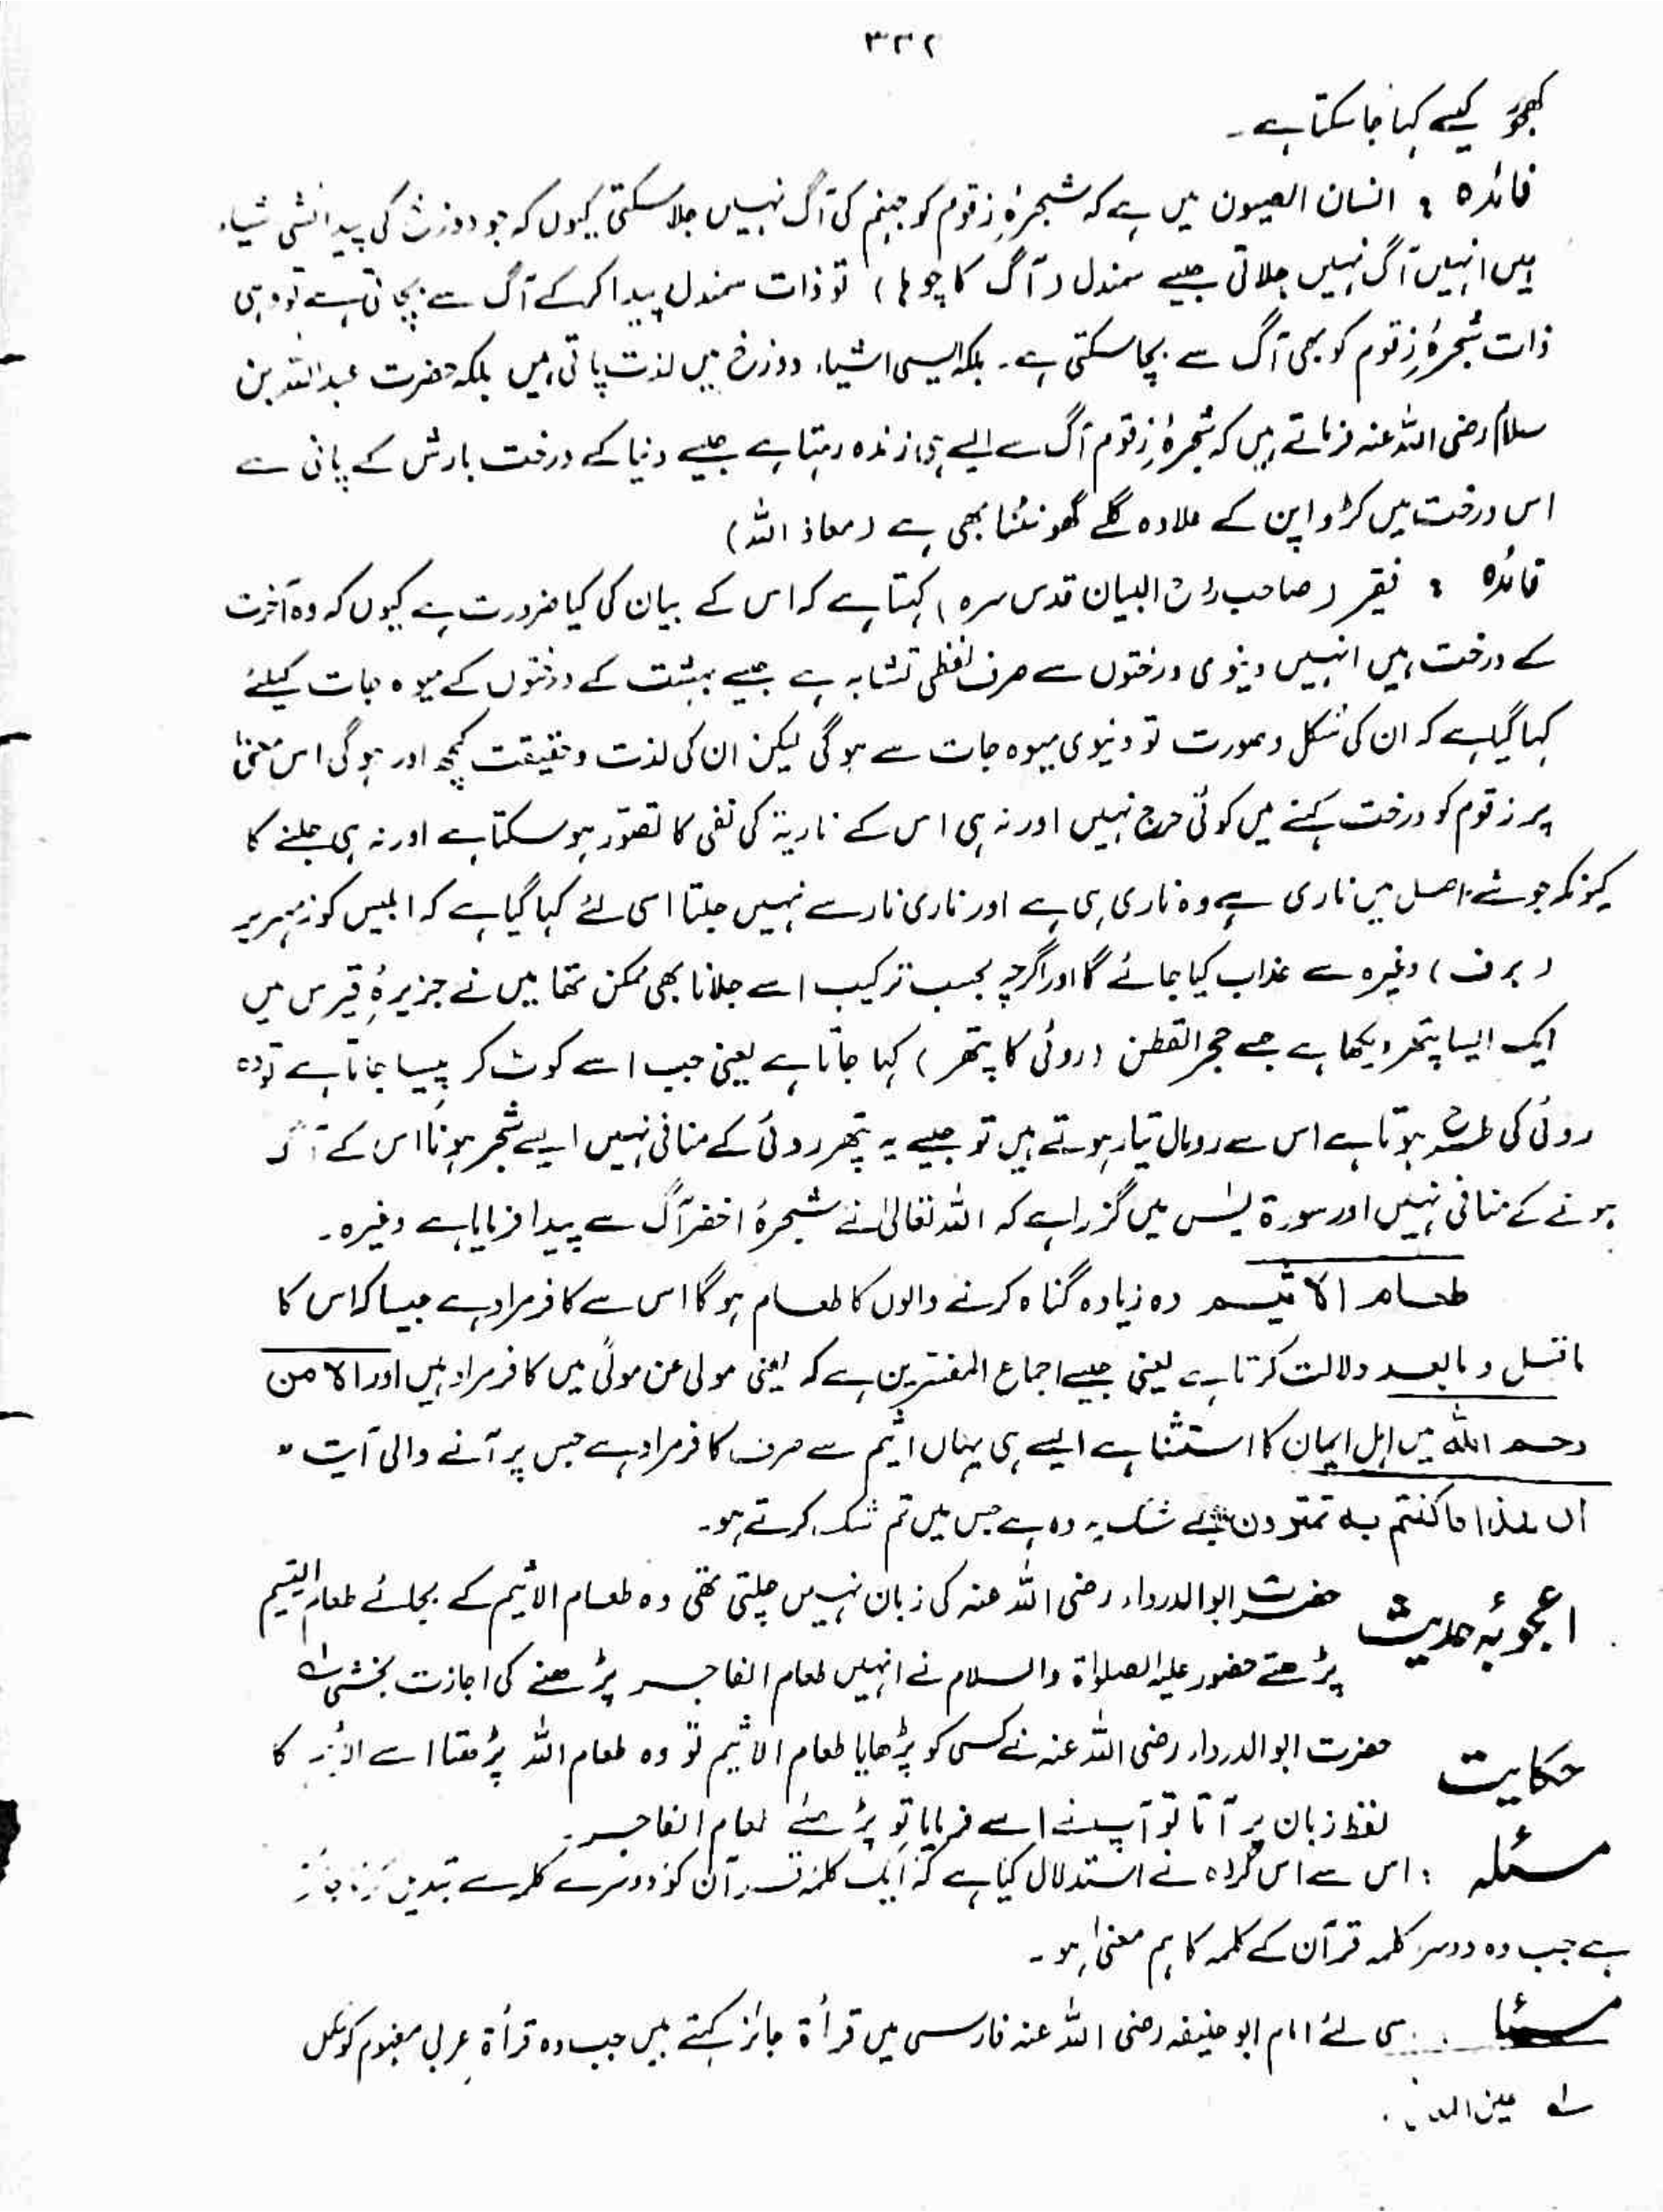 ۳۳۲
کھجور کیسے کہا جا سکتا ہے۔
فائدہ : انسان العیون میں ہے کہ شجرۂ زقوم کو جہنم کی آگ نہیں جلا سکتی کیوں کہ جو دوزخ کی پیدائشی شیاء
ہیں انہیں آگ نہیں جلاتی جیسے سمندل (آگ کا چوہا) تو ذات سمندل پیدا کرکے آگ سے بچاتی ہے تو وہی
ذات شجرۂ زقوم کو بھی آگ سے بچا سکتی ہے۔ بلکہ ایسی اشیاء دوزخ میں لذت پاتی ہیں بلکہ حضرت عبداللہ بن
سلام رضی اللہ عنہ فرماتے ہیں کہ شجرۂ زقوم آگ سے ایسے ہی زندہ رہتا ہے جیسے دنیا کے درخت بارش کے پانی سے
اس درخت میں کڑواپن کے علاوہ گلے گھونٹنا بھی ہے (معاذ اللہ)
فائدہ : فقیر (صاحب روح البیان قدس سرہ) کہتا ہے کہ اس کے بیان کی کیا ضرورت ہے کیوں کہ وہ آخرت
کے درخت ہیں انہیں دینوی درختوں سے صرف لفظی تشابہ ہے جیسے بہشت کے درختوں کے میوہ جات کیلئے
کہا گیا ہے کہ ان کی شکل و صورت تو دنیوی میوہ جات سے ہوگی لیکن ان کی لذت و حقیقت کچھ اور ہوگی اس معنیٰ
پر زقوم کو درخت کہنے میں کوئی حرج نہیں اور نہ ہی اس کے ناریۃ کی نفی کا تصوّر ہو سکتا ہے اور نہ ہی جلنے کا
کیونکہ جو شے اصل میں ناری ہے وہ ناری ہی ہے اور ناری نار سے نہیں جلتا اسی لئے کہا گیا ہے کہ ابلیس کو زمہریر
(برف) وغیرہ سے عذاب کیا جائے گا اور اگرچہ بحسب ترکیب اسے جلانا بھی ممکن تھا میں نے جزیرۂ قبرس میں
ایک ایسا پتھر دیکھا ہے جسے حجر القطن (روئی کا پتھر) کہا جاتا ہے یعنی جب اسے کوٹ کر پیسا جاتا ہے تو وہ
روئی کی طرح ہوتا ہے اس سے رومال تیار ہوتے ہیں تو جیسے یہ پتھر روئی کے منافی نہیں ایسے شجر ہونا اس کے آگ
ہونے کے منافی نہیں اور سورۃ یٰس میں گزرا ہے کہ اللہ تعالیٰ نے شجرۂ اخضر آگ سے پیدا فرمایا ہے وغیرہ۔
طعام الاثیم وہ زیادہ گناہ کرنے والوں کا طعام ہوگا اس سے کافر مراد ہے جیسا کہ اس کا
ماقبل و مابعد دلالت کرتا ہے یعنی جیسے اجماع المفسّرین ہے کہ یعنی مولی عن مولًی میں کافر مراد ہیں اور الا من
رحم اللہ میں اہل ایمان کا استثنا ہے ایسے ہی یہاں اثیم سے صرف کافر مراد ہے جس پر آنے والی آیت "
ان ھٰذا ما کنتم بہ تمترون بے شک یہ وہ ہے جس میں تم شک کرتے ہو۔
اعجوبۂ حدیث حضرت ابو الدرداء رضی اللہ عنہ کی زبان نہیں چلتی تھی وہ طعام الاثیم کے بجائے طعام الیتیم
پڑھتے حضور علیہ الصلوٰۃ والسلام نے انہیں طعام الفاجر پڑھنے کی اجازت بخشی
حکایت حضرت ابو الدرداء رضی اللہ عنہ نے کسی کو پڑھایا طعام الاثیم تو وہ طعام اللہ پڑھتا اسے کا
لفظ زبان پر آتا تو آپ نے اسے فرمایا تو پڑھئے طعام الفاجر۔
مسئلہ : اس سے اس گروہ نے استدلال کیا ہے کہ ایک کلمہ قرآن کو دوسرے کلمہ سے تبدیل کرنا جائز
ہے جب وہ دوسرا کلمہ قرآن کے کلمہ کا ہم معنیٰ ہو۔
مسئلہ سی لئے امام ابو حنیفہ رضی اللہ عنہ فارسی میں قرأۃ جائز کہتے ہیں جب وہ قرأۃ عربی مفہوم کو مکمل
لہ عین